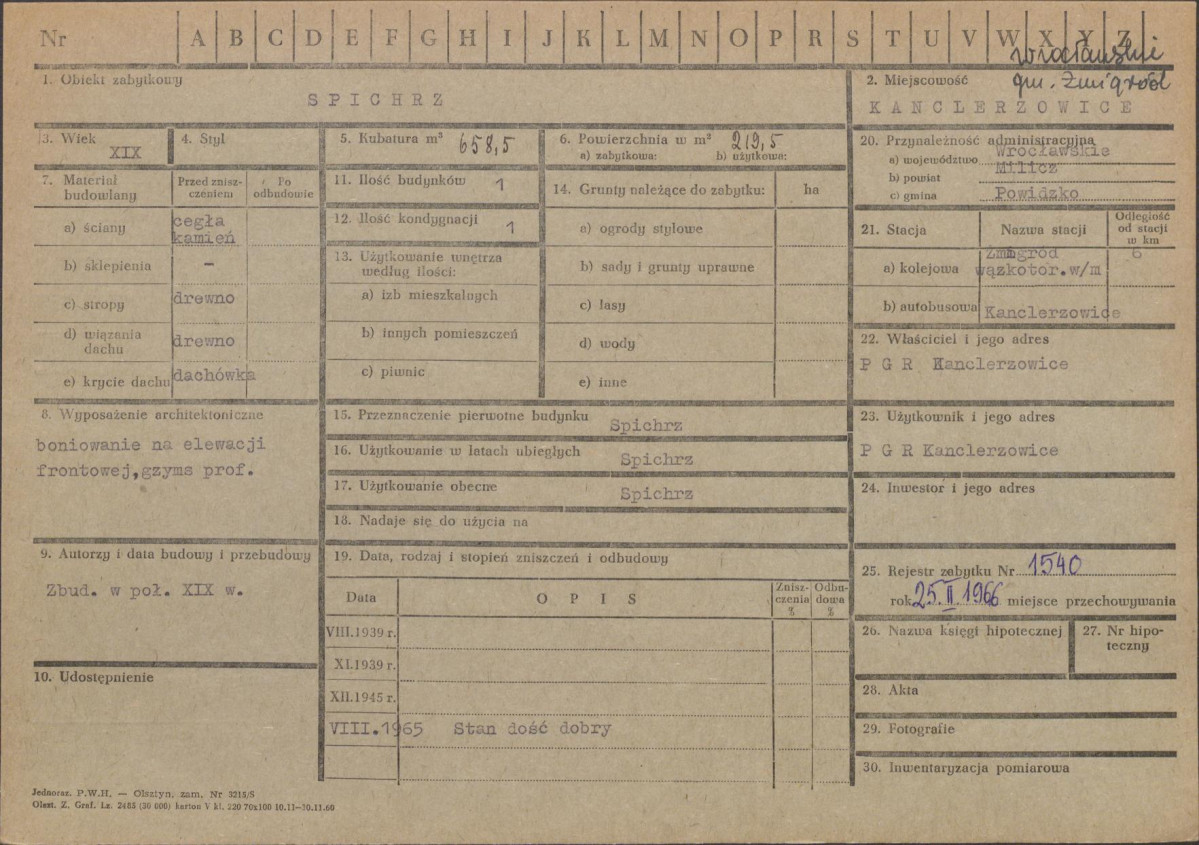 Nr A B C D E F G H I J K L M N O P R S T U V W X Y Z
wrocławskie
gm. Żmigród
1. Obiekt zabytkowy
SPICHRZ
2. Miejscowość
KANCLERZOWICE
3. Wiek
XIX
4. Styl
5. Kubatura m³ 658,5
6. Powierzchnia w m² 219,5
a) zabytkowa: b) użytkowa:
7. Materiał budowlany
Przed zniszczeniem
Po odbudowie
a) ściany cegła
kamień
b) sklepienia –
c) stropy drewno
d) wiązania dachu drewno
e) krycie dachu dachówka
8. Wyposażenie architektoniczne
boniowanie na elewacji
frontowej,gzyms prof.
9. Autorzy i data budowy i przebudowy
Zbud. w poł. XIX w.
10. Udostępnienie
11. Ilość budynków 1
12. Ilość kondygnacji 1
13. Użytkowanie wnętrza
według ilości:
a) izb mieszkalnych
b) innych pomieszczeń
c) piwnic
14. Grunty należące do zabytku: ha
a) ogrody stylowe
b) sady i grunty uprawne
c) lasy
d) wody
e) inne
15. Przeznaczenie pierwotne budynku
Spichrz
16. Użytkowanie w latach ubiegłych
Spichrz
17. Użytkowanie obecne
Spichrz
18. Nadaje się do użycia na
19. Data, rodzaj i stopień zniszczeń i odbudowy
Data OPIS Zniszczenia % Odbudowa %
VIII.1939 r.
XI.1939 r.
XII.1945 r.
VIII.1965 Stan dość dobry
20. Przynależność administracyjna
a) województwo Wrocławskie
b) powiat Milicz
c) gmina Powidzko
21. Stacja Nazwa stacji Odległość od stacji w km
a) kolejowa Żmigród wązkotor.w/m 6
b) autobusowa Kanclerzowice
22. Właściciel i jego adres
P G R Kanclerzowice
23. Użytkownik i jego adres
P G R Kanclerzowice
24. Inwestor i jego adres
25. Rejestr zabytku Nr 1540
rok 25.II.1966 miejsce przechowywania
26. Nazwa księgi hipotecznej
27. Nr hipoteczny
28. Akta
29. Fotografie
30. Inwentaryzacja pomiarowa
Jednoraz. P.W.H. — Olsztyn, zam. Nr 3215/S
Olszt. Z. Graf. Lz. 2485 (30 000) karton V kl. 220 70x100 10.11—30.11.60